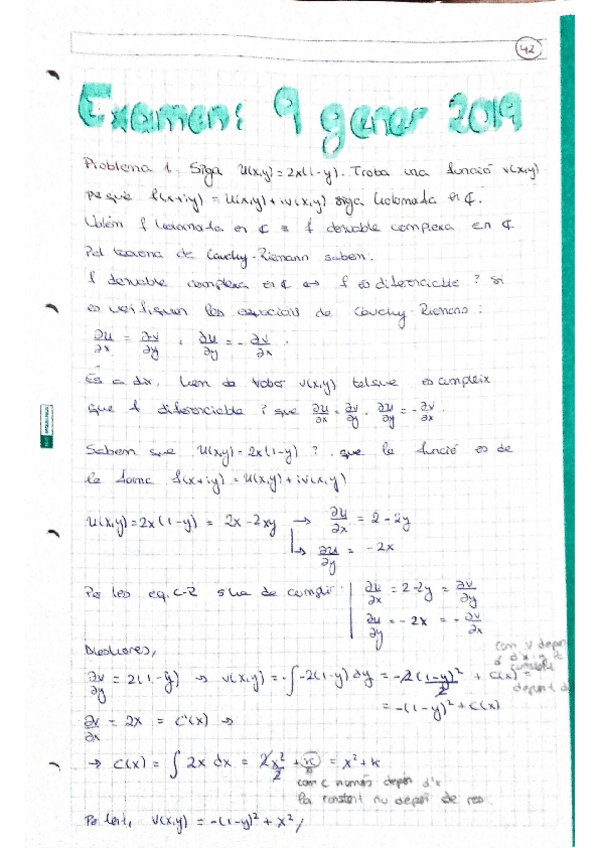 42
Examen: 9 gener 2019
Problema 1. Siga U(x,y) = 2x(1-y). Troba una funció v(x,y)
per que f(x+iy) = U(x,y) + iv(x,y) siga holomorfa en ₵.
Volem f holomorfa en ₵ f derivable complexa en ₵
Pel teorema de Cauchy-Riemann sabem:
f derivable complexa en ₵ ↔ f es diferenciable ? si
es verifiquen les equacions de Cauchy-Riemann:
∂u/∂x = ∂v/∂y , ∂u/∂y = - ∂v/∂x .
És a dir, hem de trobar v(x,y) tal que es compleix
que f diferenciable ? que ∂u/∂x = ∂v/∂y , ∂u/∂y = - ∂v/∂x .
Sabem que U(x,y) = 2x(1-y) ? que la funció es de
la forma f(x+iy) = U(x,y) + iv(x,y)
U(x,y) = 2x(1-y) = 2x - 2xy → ∂u/∂x = 2 - 2y
↳ ∂u/∂y = -2x
Per les eq. C-R s'ha de complir: ∂u/∂x = 2-2y = ∂v/∂y
∂u/∂y = -2x = - ∂v/∂x
Aleshores,
com v depen
d'x
constant
depen d
∂v/∂y = 2(1-y) → v(x,y) = -∫ -2(1-y) dy = -2(1-y)²/2 + C(x) =
= -(1-y)² + C(x)
∂v/∂x = 2x = C'(x) →
→ C(x) = ∫ 2x dx = 2x²/2 + k = x² + k
com C només depen d'x
la constant no depen de res
Per tant, v(x,y) = -(1-y)² + x² /